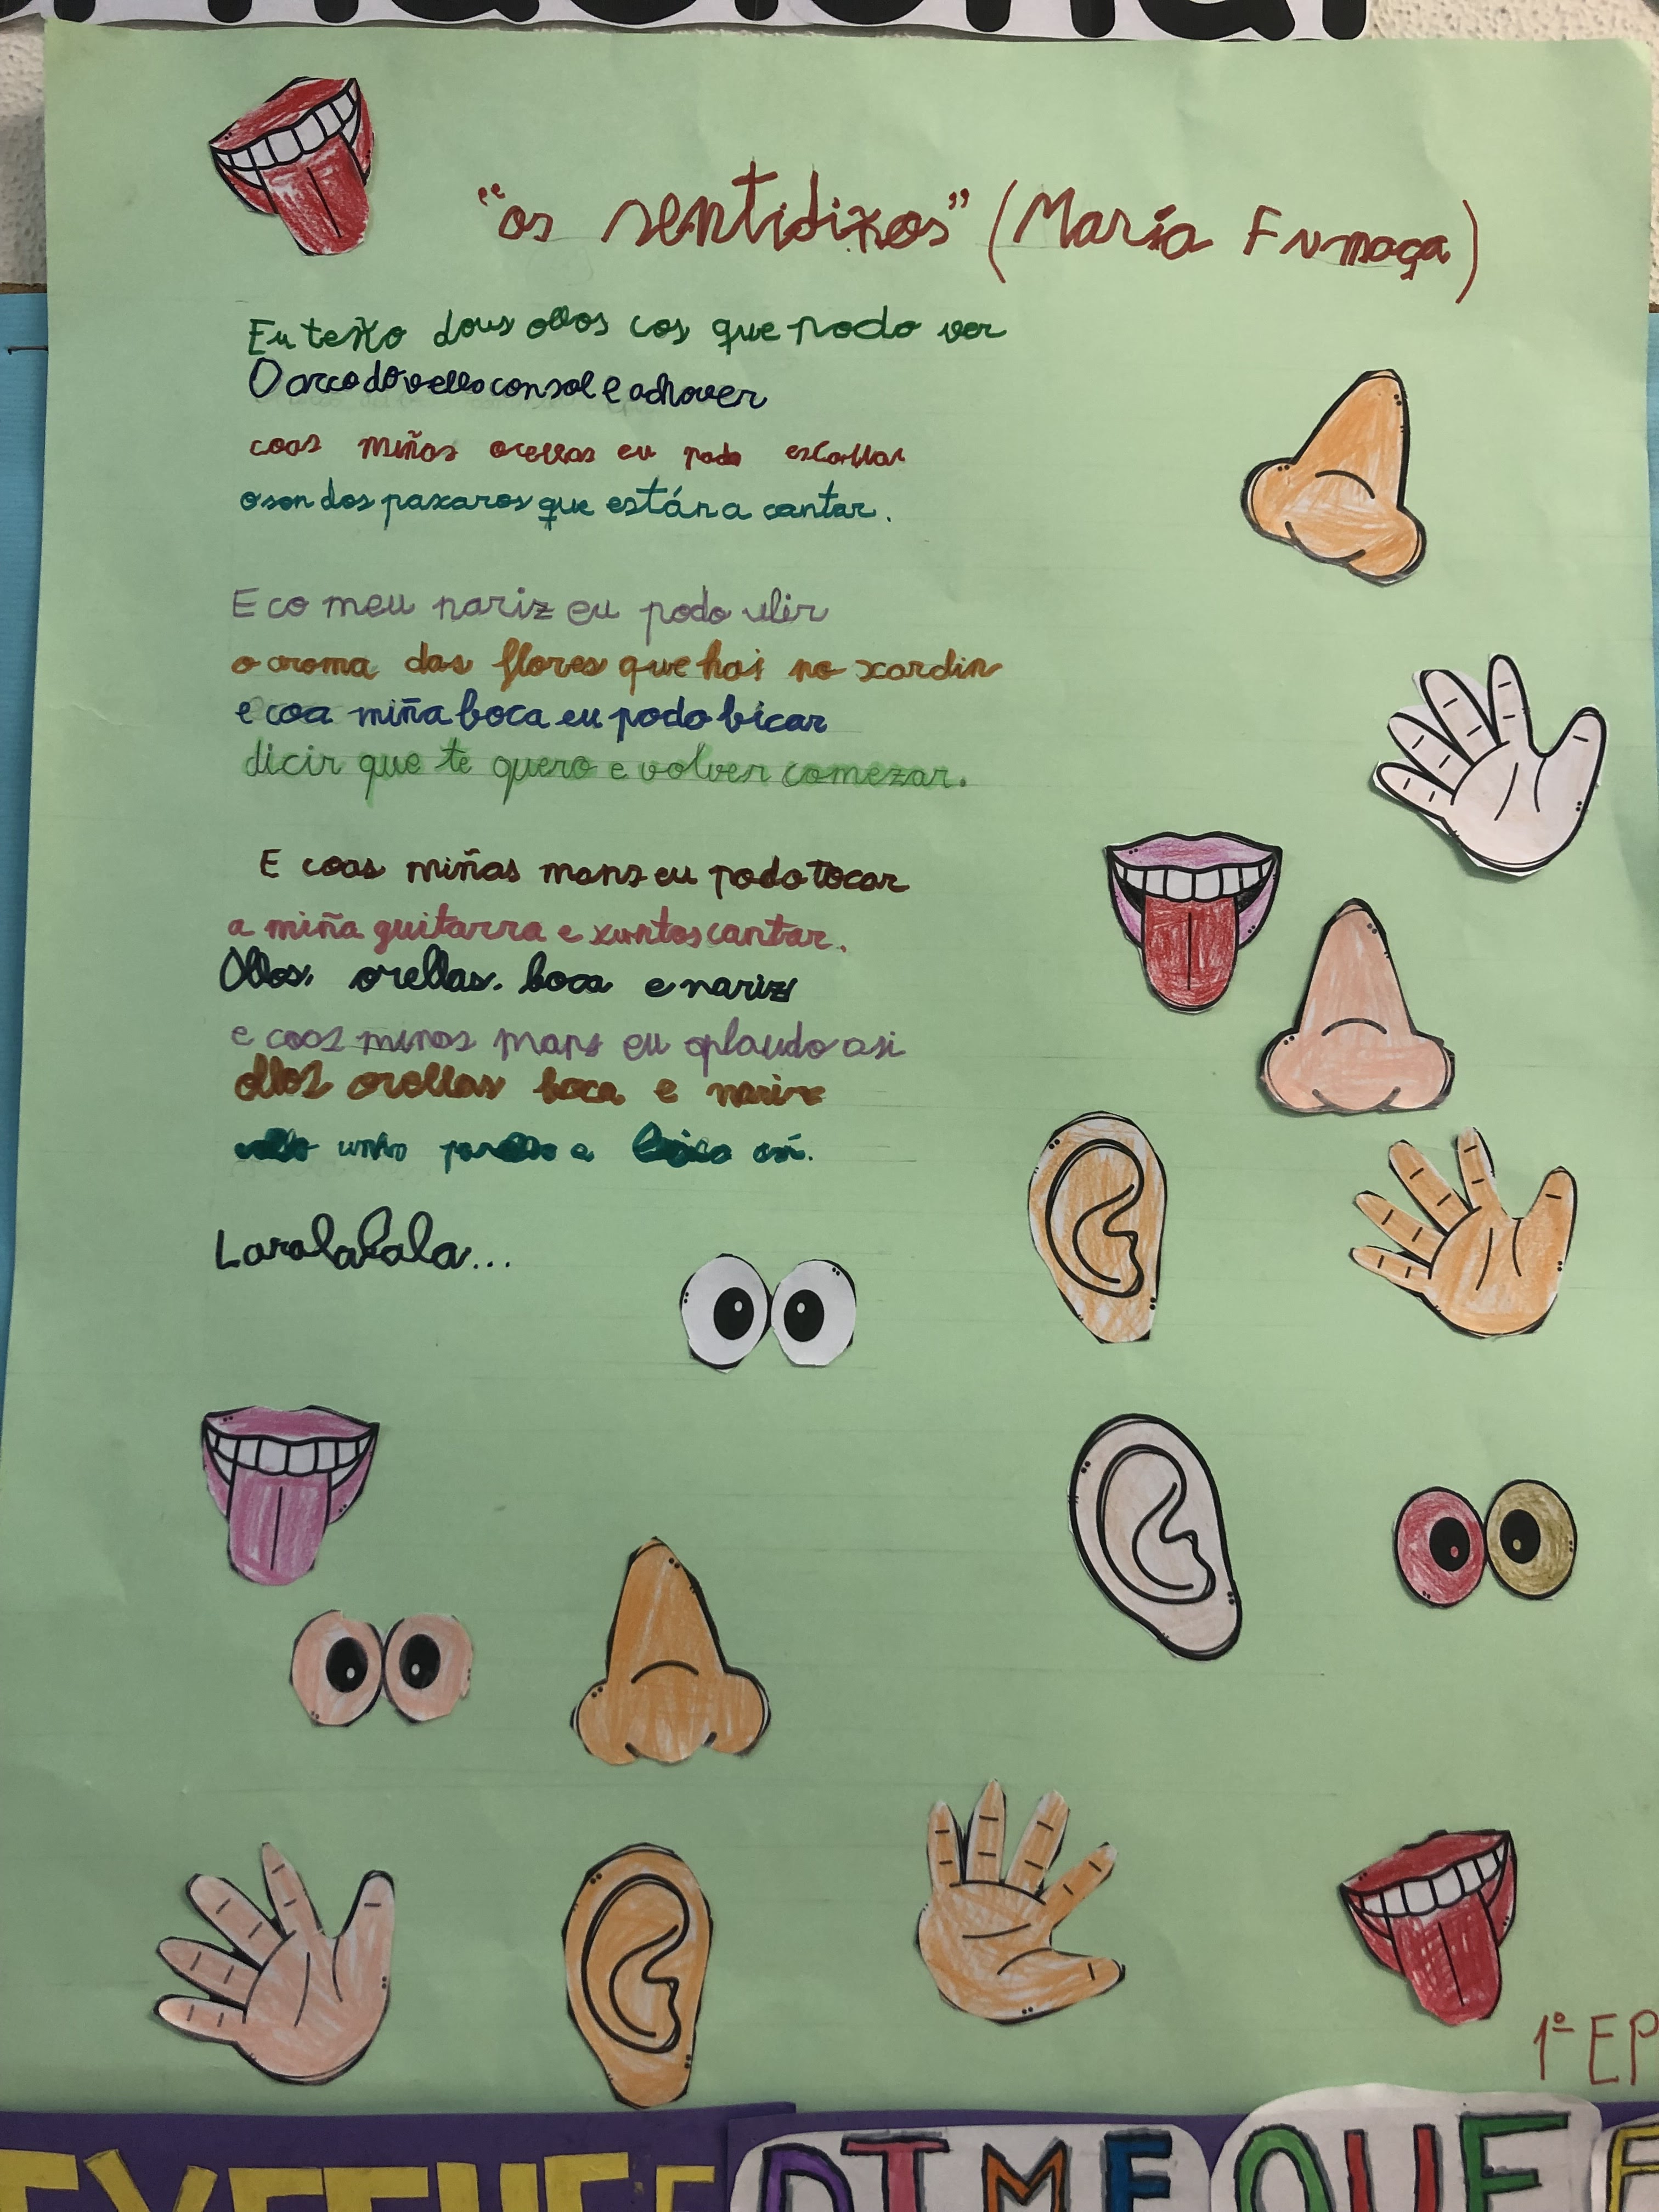 "os sentidiños" (María Fumaça)
Eu teño dous ollos cos que podo ver
O arco do vello con sol e a chover
coas miñas orellas eu podo escoitar
o son dos paxaros que están a cantar.
E co meu nariz eu podo ulir
o aroma das flores que hai no xardin
e coa miña boca eu podo bicar
dicir que te quero e volver comezar.
E coas miñas mans eu podo tocar
a miña guitarra e xuntos cantar.
Ollos, orellas, boca e nariz
e coas minas mans eu aplaudo asi
ollos orellas boca e nariz
así.
Laralalala...
1º EP
DIME QUE